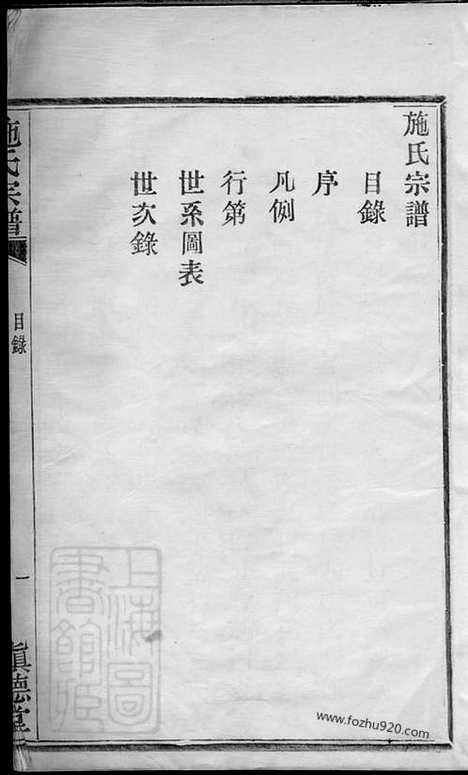 施氏宗譜
目錄
序
凡例
行第
世系圖表
世次錄
施氏宗譜
目錄
一
慎德堂
上海圖
書館
www.fozhu920.com